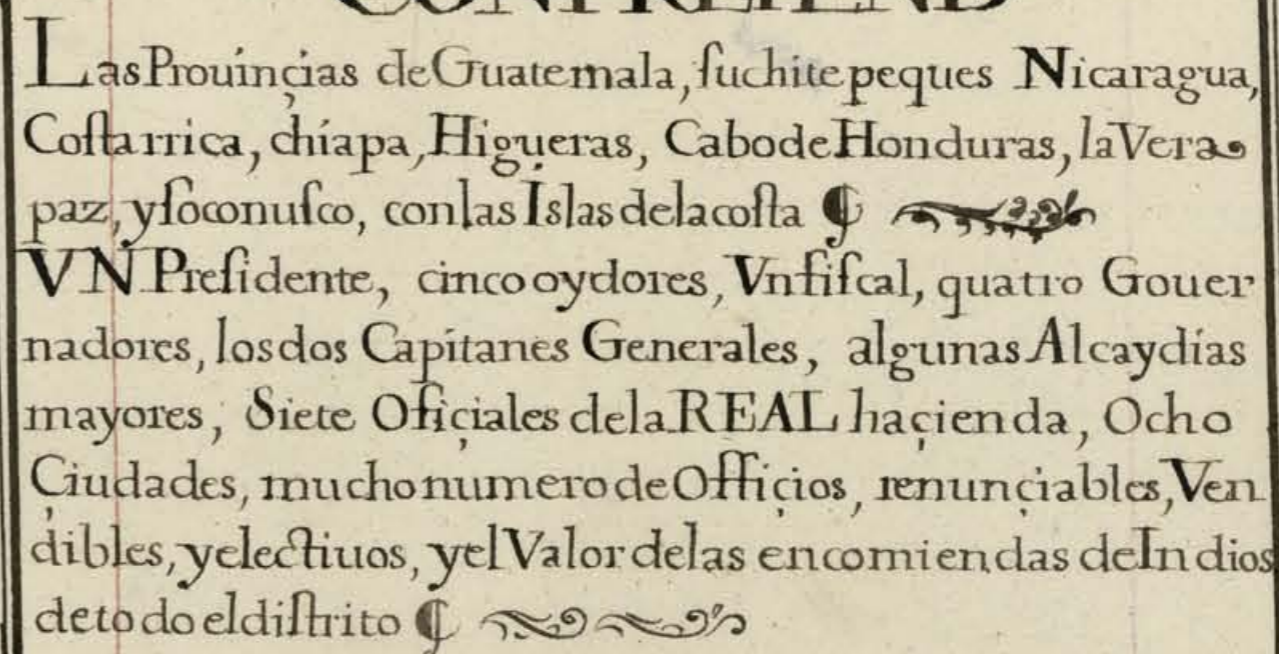 Las Prouinçias de Guatemala, ſuchitepeques Nicaragua,
Coſtarrica, chiapa, Higueras, Cabo de Honduras, la Vera
paz, y ſoconuſco, con las Islas de la coſta
VN Preſidente, cinco oydores, Vn fiſcal, quatro Gouer
nadores, los dos Capitanes Generales, algunas Alcaydias
mayores, Siete Ofiçiales de la REAL haçienda, Ocho
Çiudades, mucho numero de Offiçios, renunçiables, Ven
dibles, y electiuos, y el Valor de las encomiendas de Indios
de todo el diſtrito